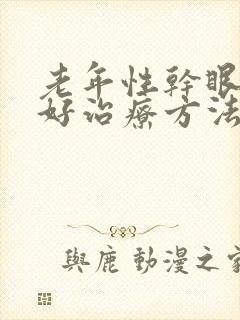 老年性幹眼
好治療方法
與鹿 動漫之家